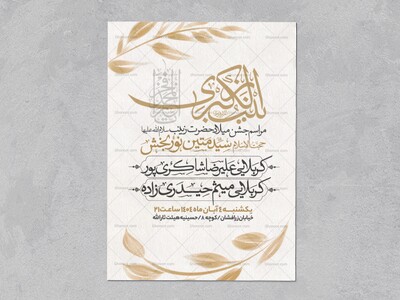 زینب الکبری
مراسم جشن میلاد حضرت زینب سلام الله علیها
حجت الاسلام سید متین نوربخش
کربلایی علیرضا شاکری پور
کربلایی میثم حیدری زاده
یکشنبه ٤ آبان ماه ١٤٠٤ ساعت ٢١
خیابان زرافشان / کوچه ٨ / حسینیه هیئت ثارالله